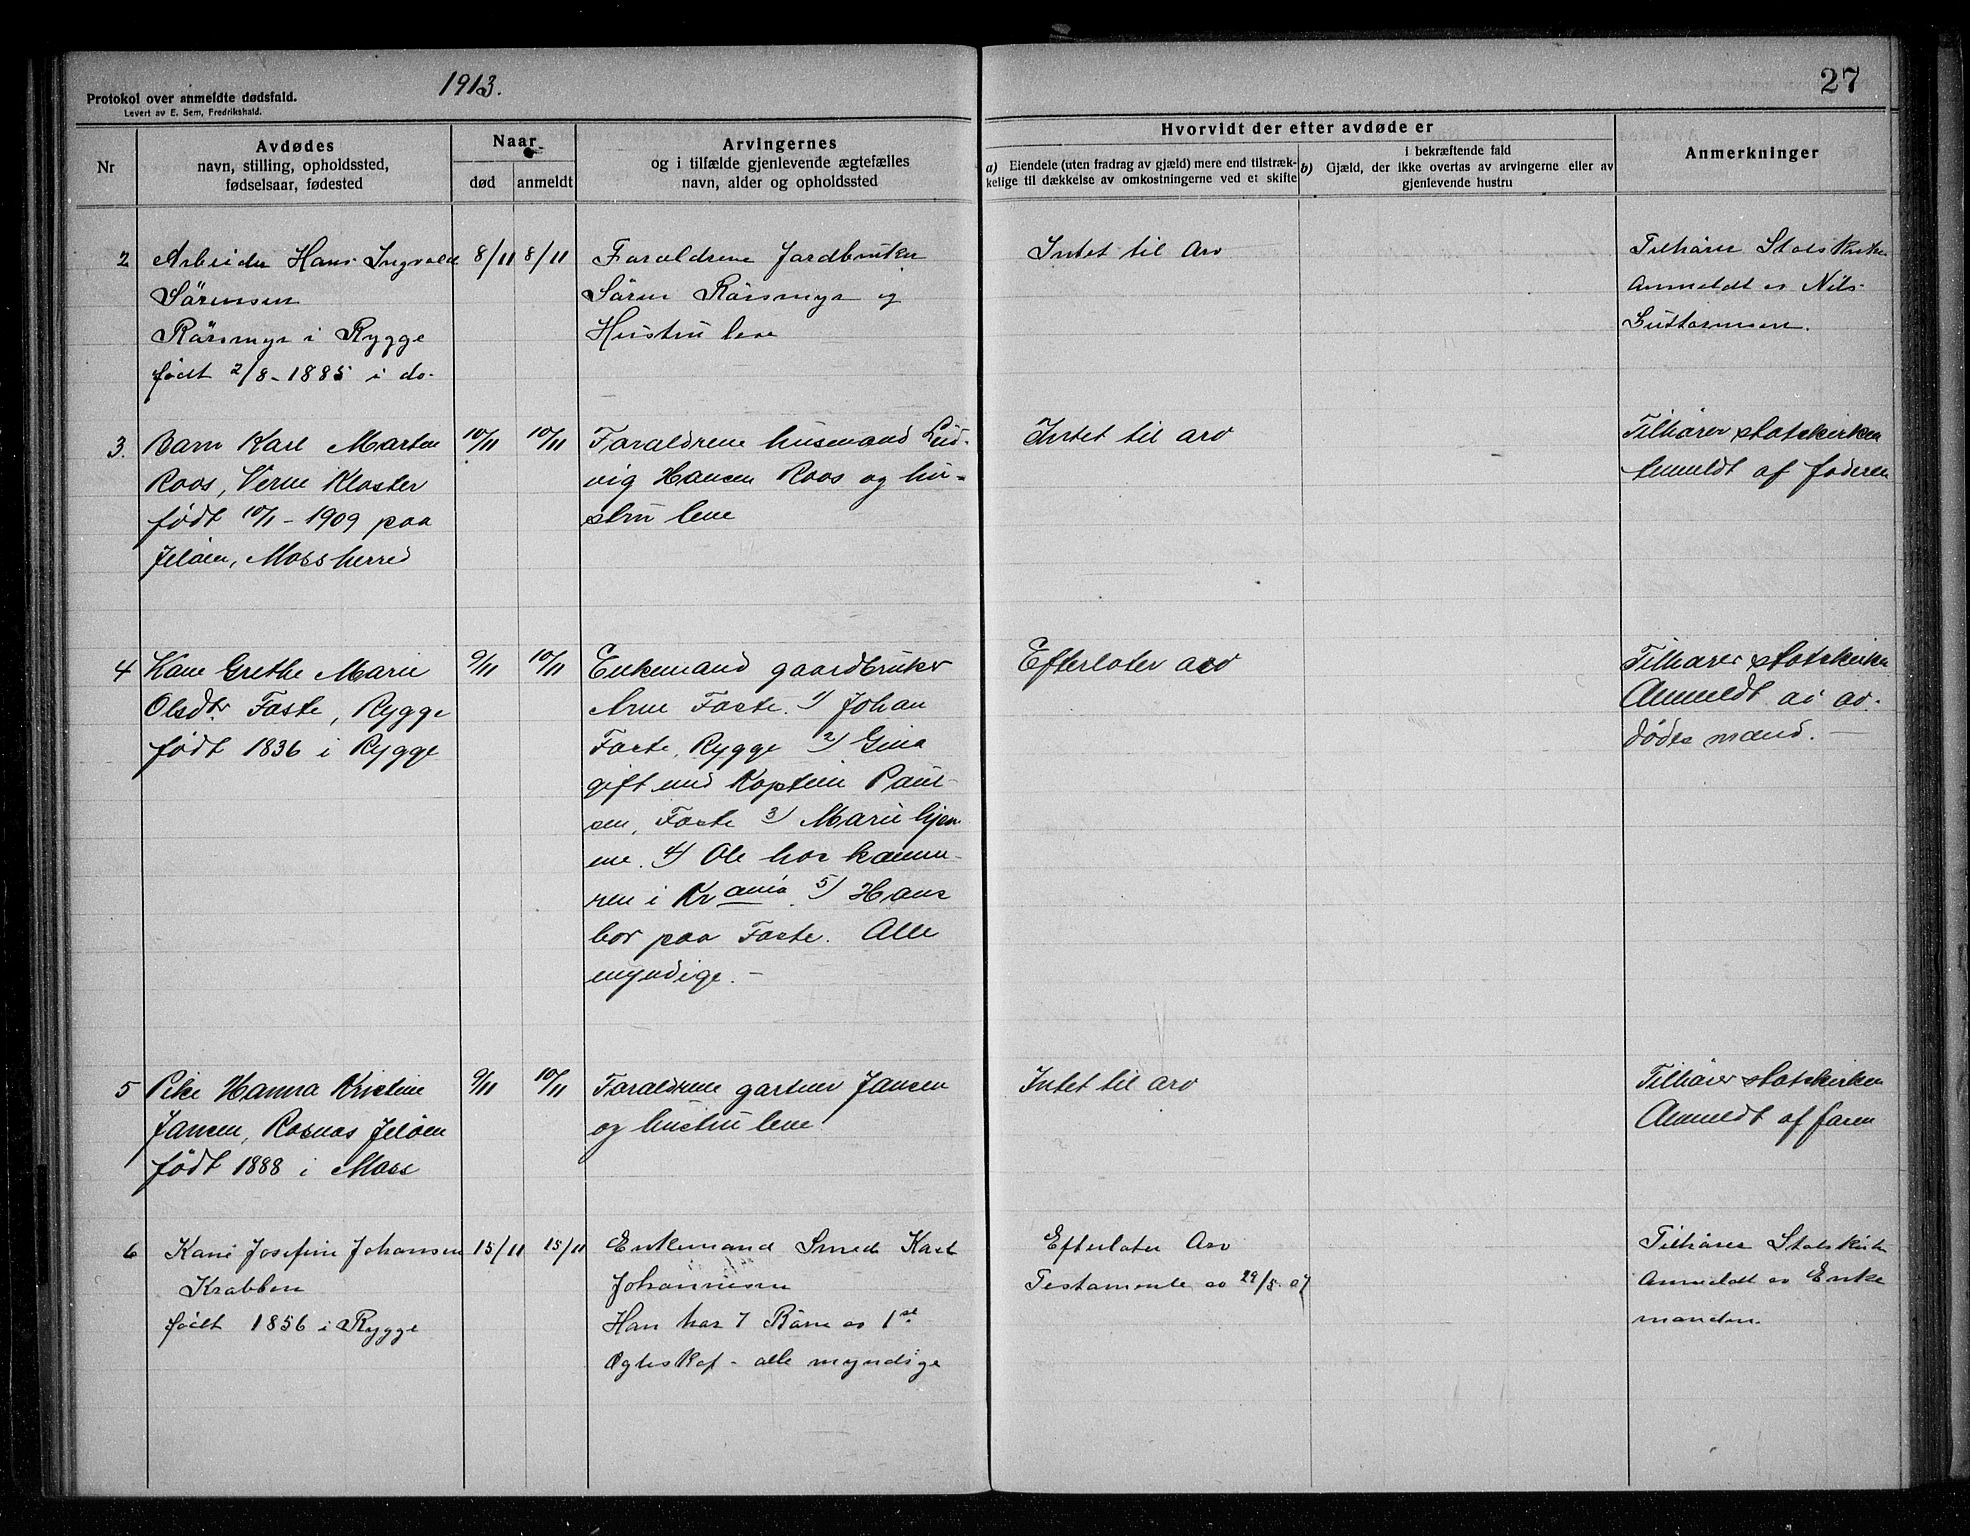 1913.
27
Protokol over anmeldte dødsfald.
Levert av E. Sem, Fredrikshald.
Nr
Avdødes
navn, stilling, opholdssted,
fødselsaar, fødested
Naar
død
anmeldt
Arvingernes
og i tilfælde gjenlevende ægtefælles
navn, alder og opholdssted
Hvorvidt der efter avdøde er
a) Eiendele (uten fradrag av gjæld) mere end tilstræk-
kelige til dækkelse av omkostningerne ved et skifte
i bekræftende fald
b) Gjæld, der ikke overtas av arvingerne eller av
gjenlevende hustru
Anmerkninger
2 Arbeider Hans Ingvald
Sörensen
Rörsmyr i Rygge
födt 2/8-1885 i do.
8/11 8/11
Forældrene Jordbruker
Sören Rörsmyr og
Hustru leve
Intet til Arv
Tilhører Statskirken
Anmeldt av Nils
Guttormsen.
3. Barn Karl Marten
Roos, Verne Kloster
født 10/1-1909 paa
Jeløen, Mossherred
10/11 10/11
Forældrene husmand Lud-
vig Hansen Roos og hu-
stru leve
Intet til arv
Tilhører statskirken
Anmeldt af faderen
4 Kone Grethe Marie
Olsdtr Foste, Rygge
født 1836 i Rygge
9/11 10/11
Enkemand gaardbruker
Arne Foste. 1) Johan
Foste, Rygge 2) Gina
gift med Kaptein Paul-
sen, Foste 3) Marie hjem-
me. 4) Ole hos kamme-
ren i Krania. 5) Hans
bor paa Foste. Alle
myndige. —
Efterlater arv
Tilhører statskirken
Anmeldt av av-
dødes mand. —
5 Pike Hanna Kristine
Jansen, Rosnas Jeløen
født 1888 i Moss
9/11 10/11
Forældrene gartner Jansen
og hustru leve
Intet til arv
Tilhører statskirken
Anmeldt af faren
6 Kone Josefine Johansen
Krabben
født 1856 i Rygge
15/11 15/11
Enkemand Smed Karl
Johannesen
Han har 7 Børn av 1ste
Ægteskap - alle myndige
Efterlater Arv
Testamente av 29/5. 07
Tilhører Statskirken
Anmeldt av Enke
manden.